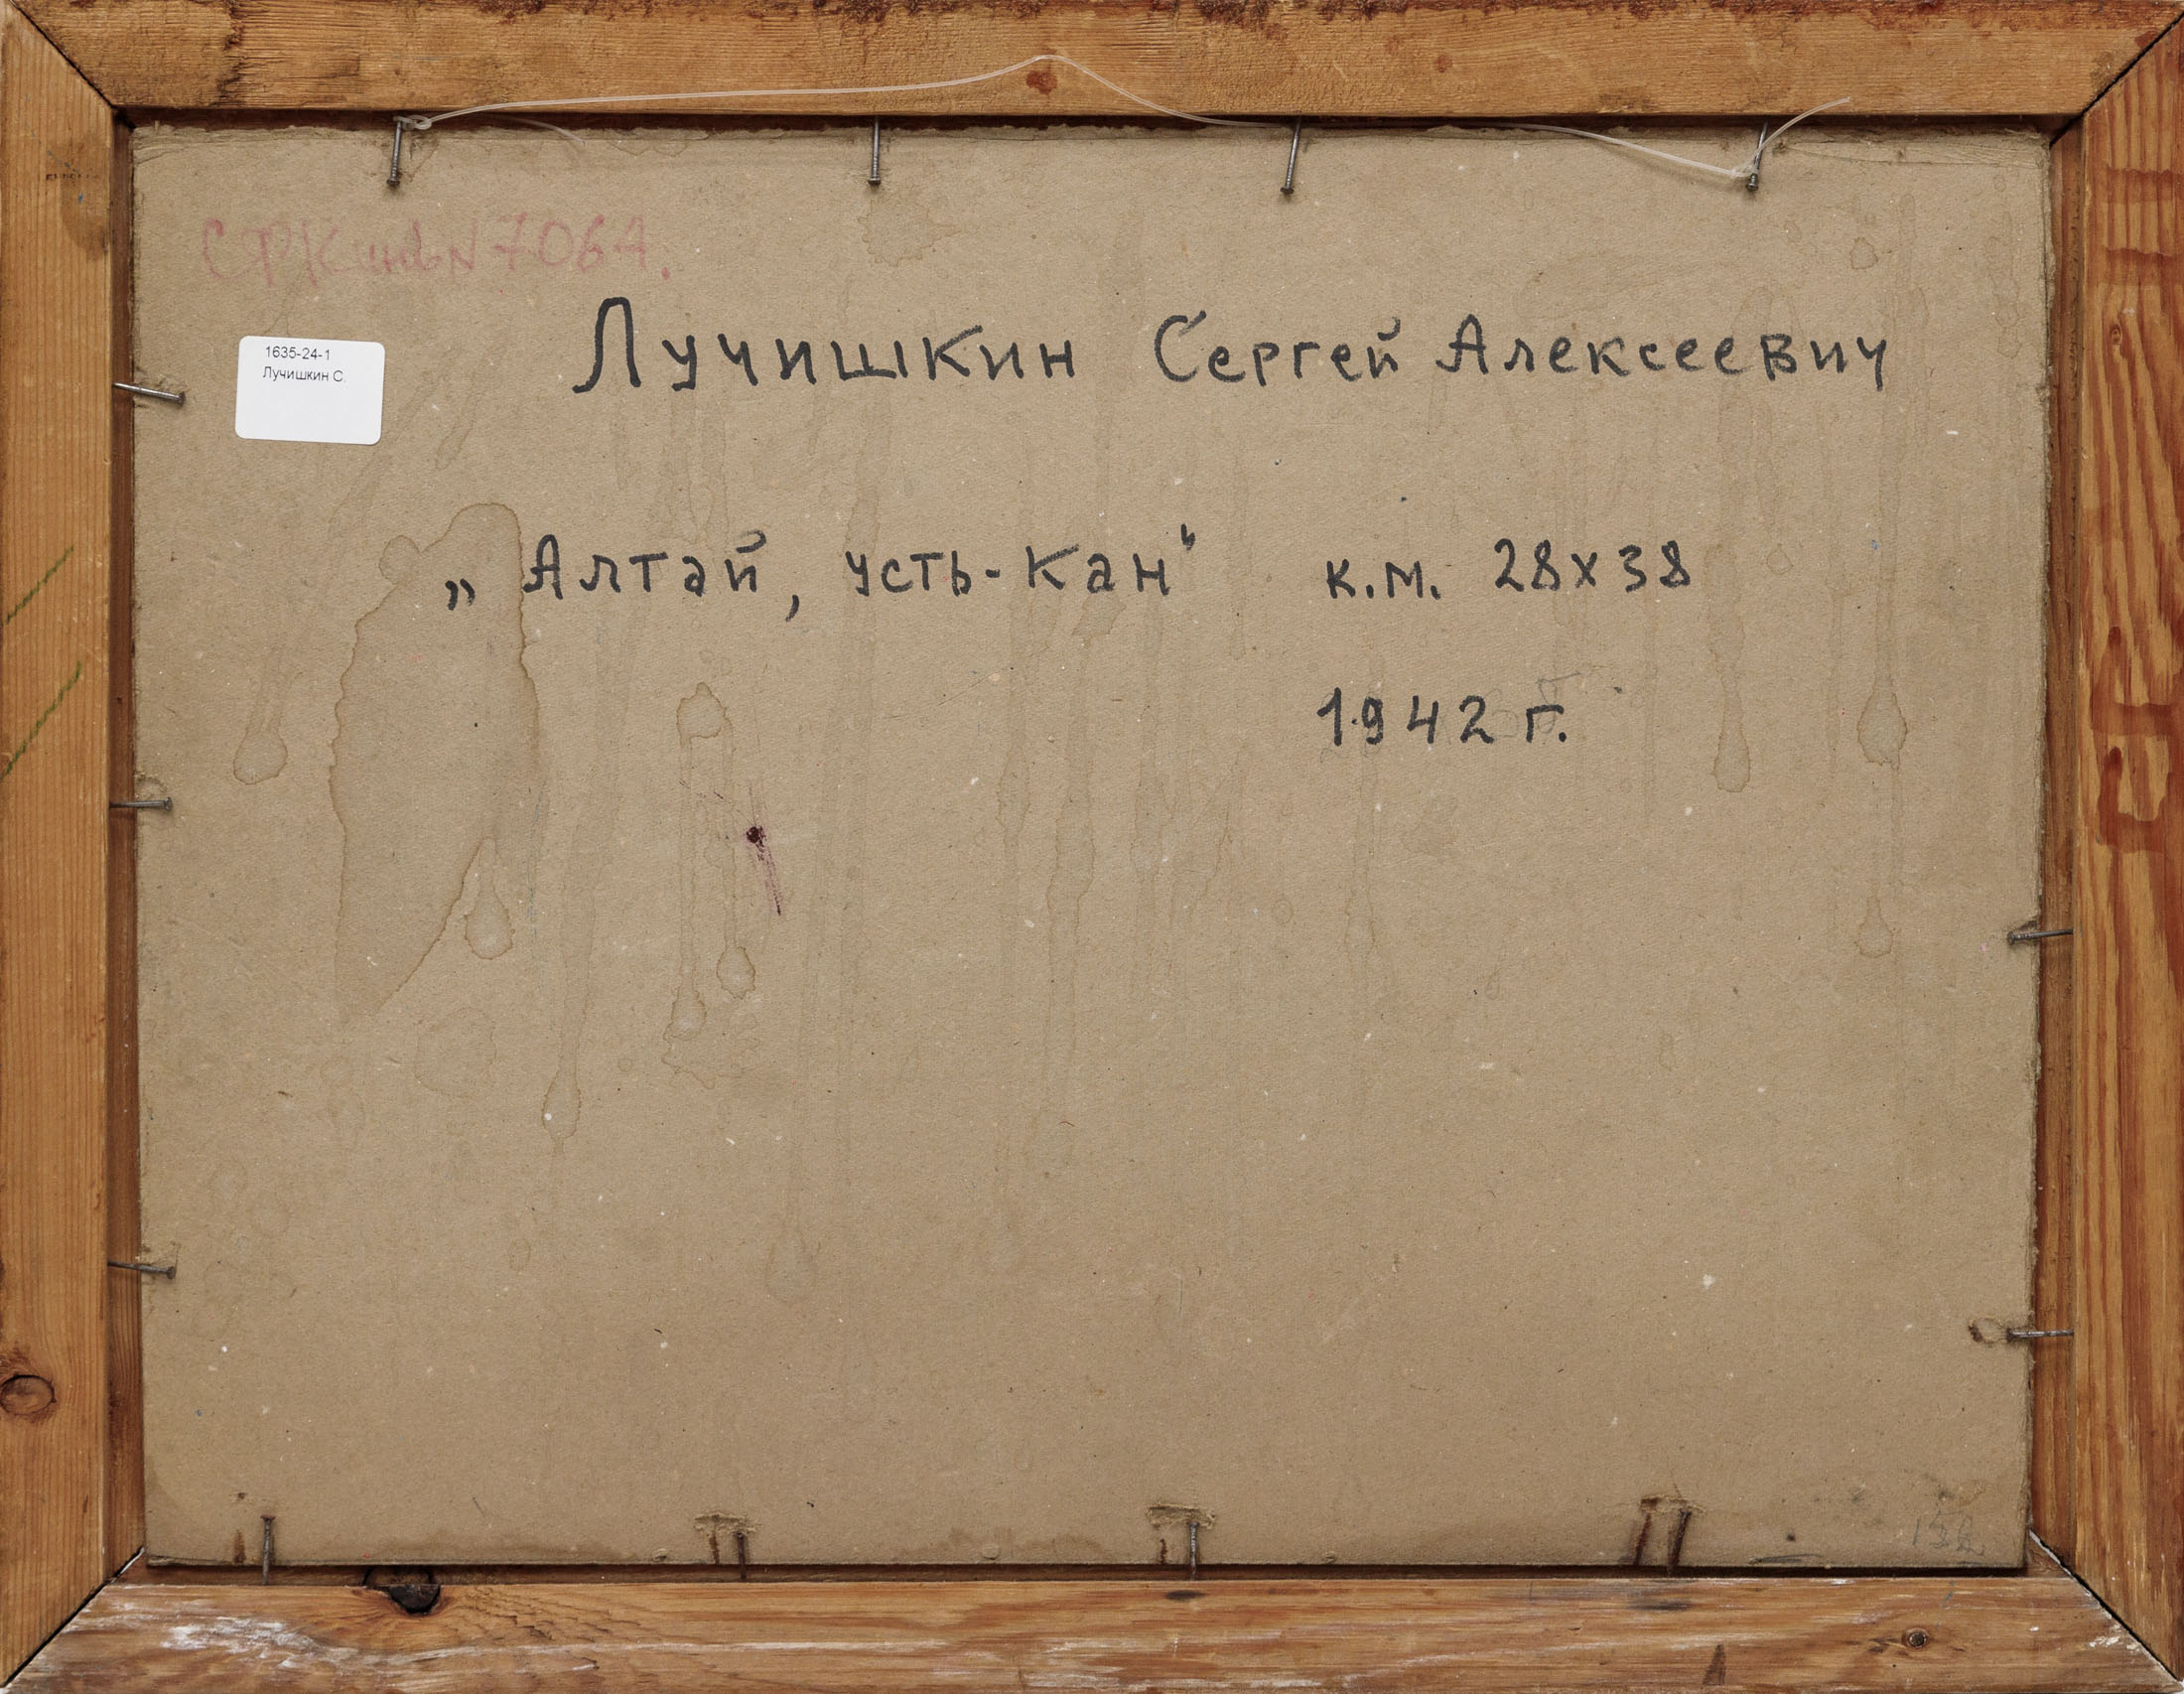 СФК инв N 7064.
1635-24-1
Лучишкин С.
Лучишкин Сергей Алексеевич
„Алтай, Усть-Кан" к.м. 28х38
1942 г.